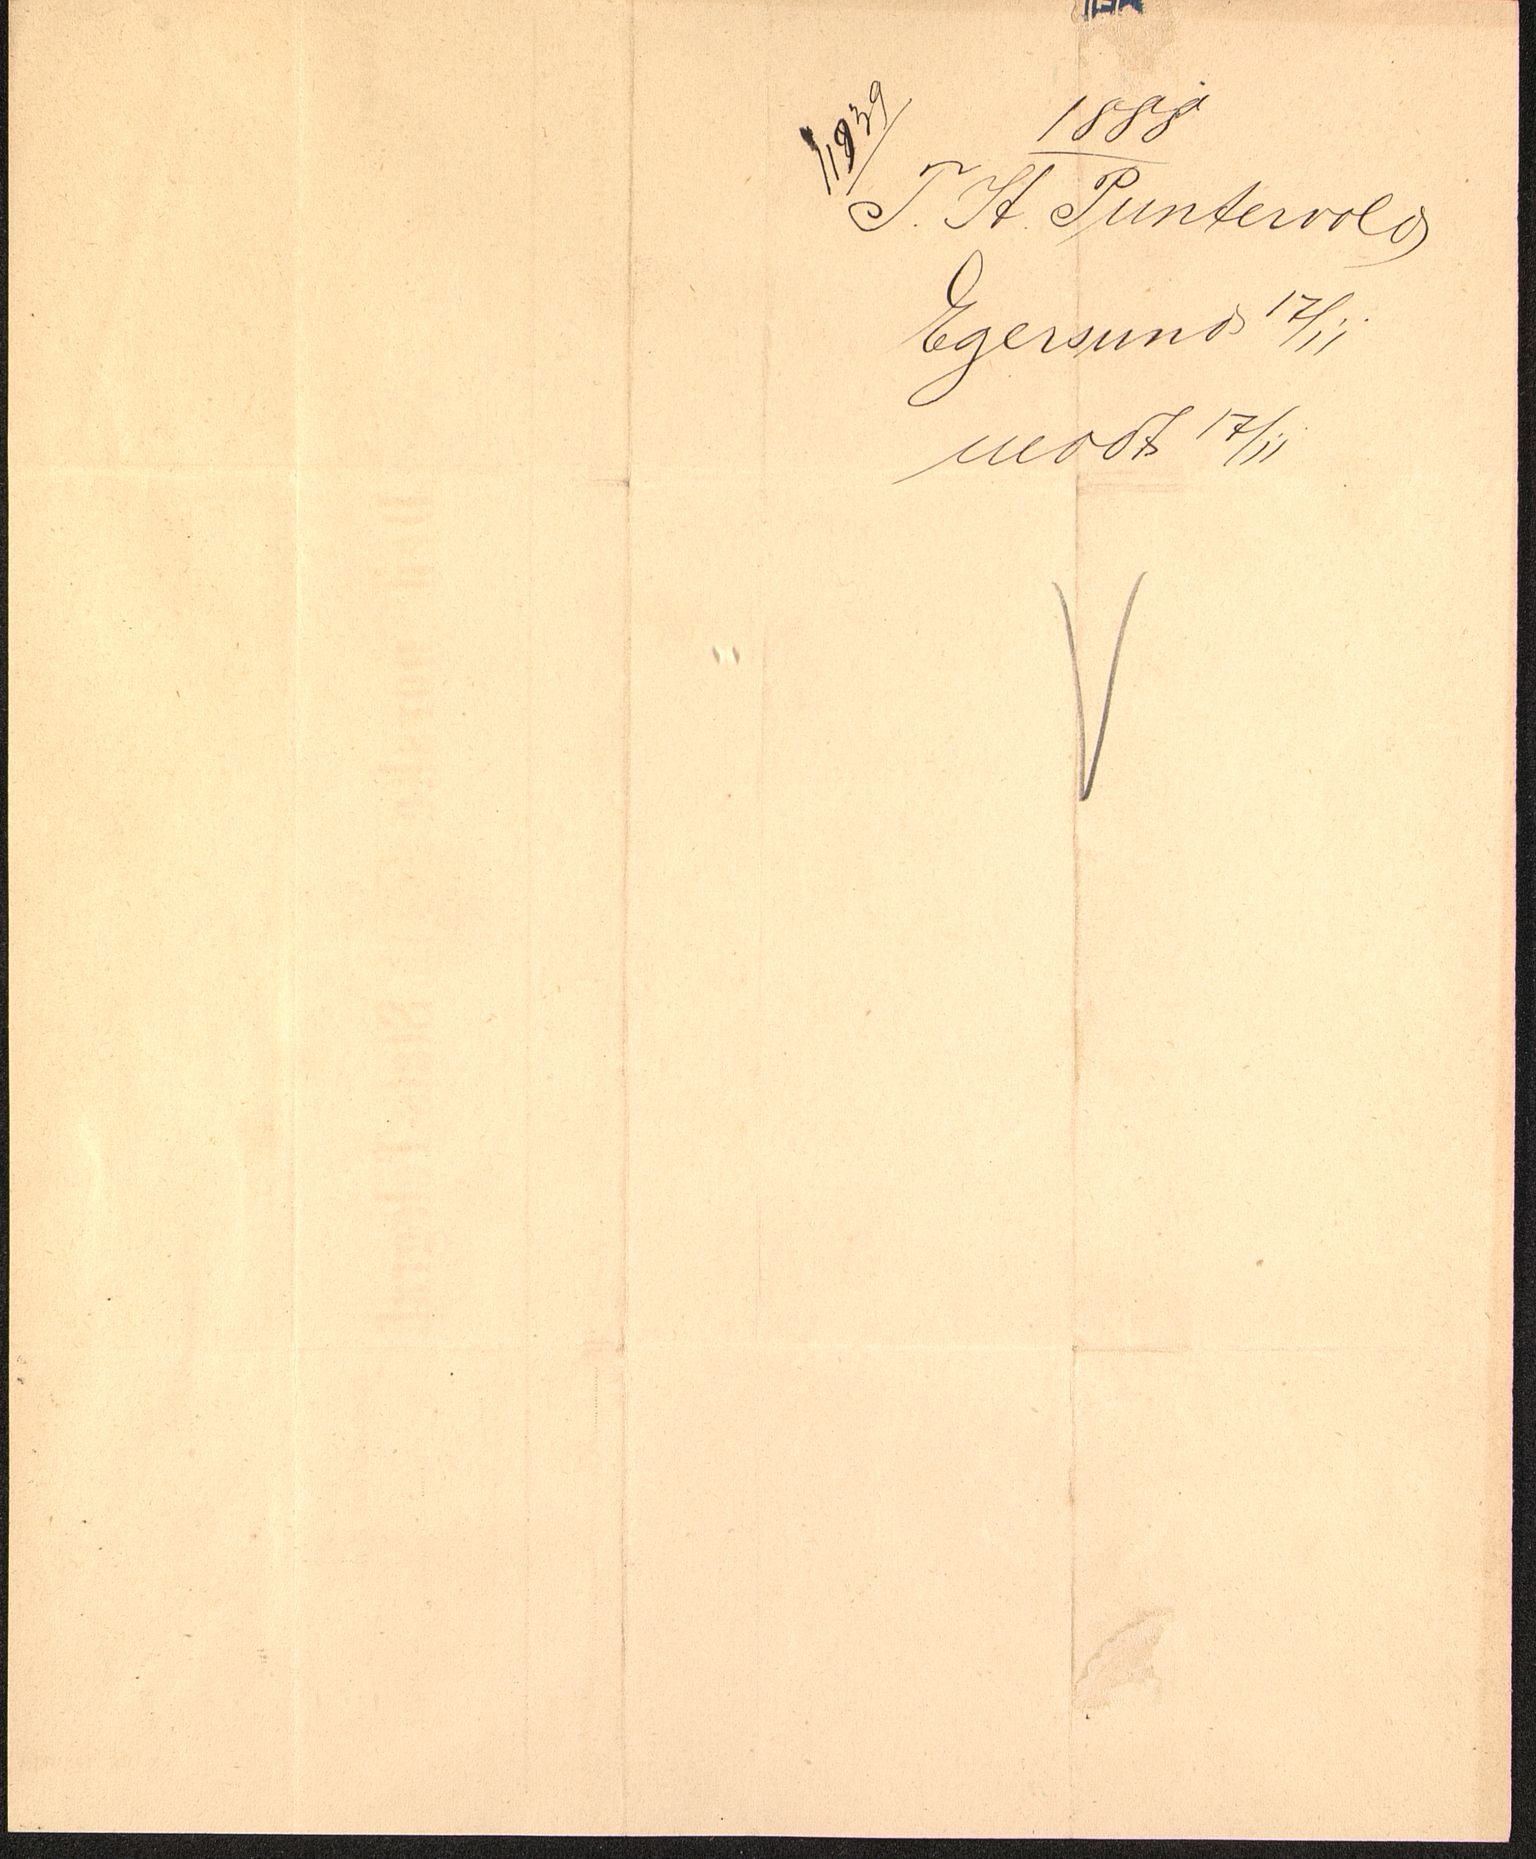 1888
T. H. Puntervold
Egersund 17/11
modt 17/11